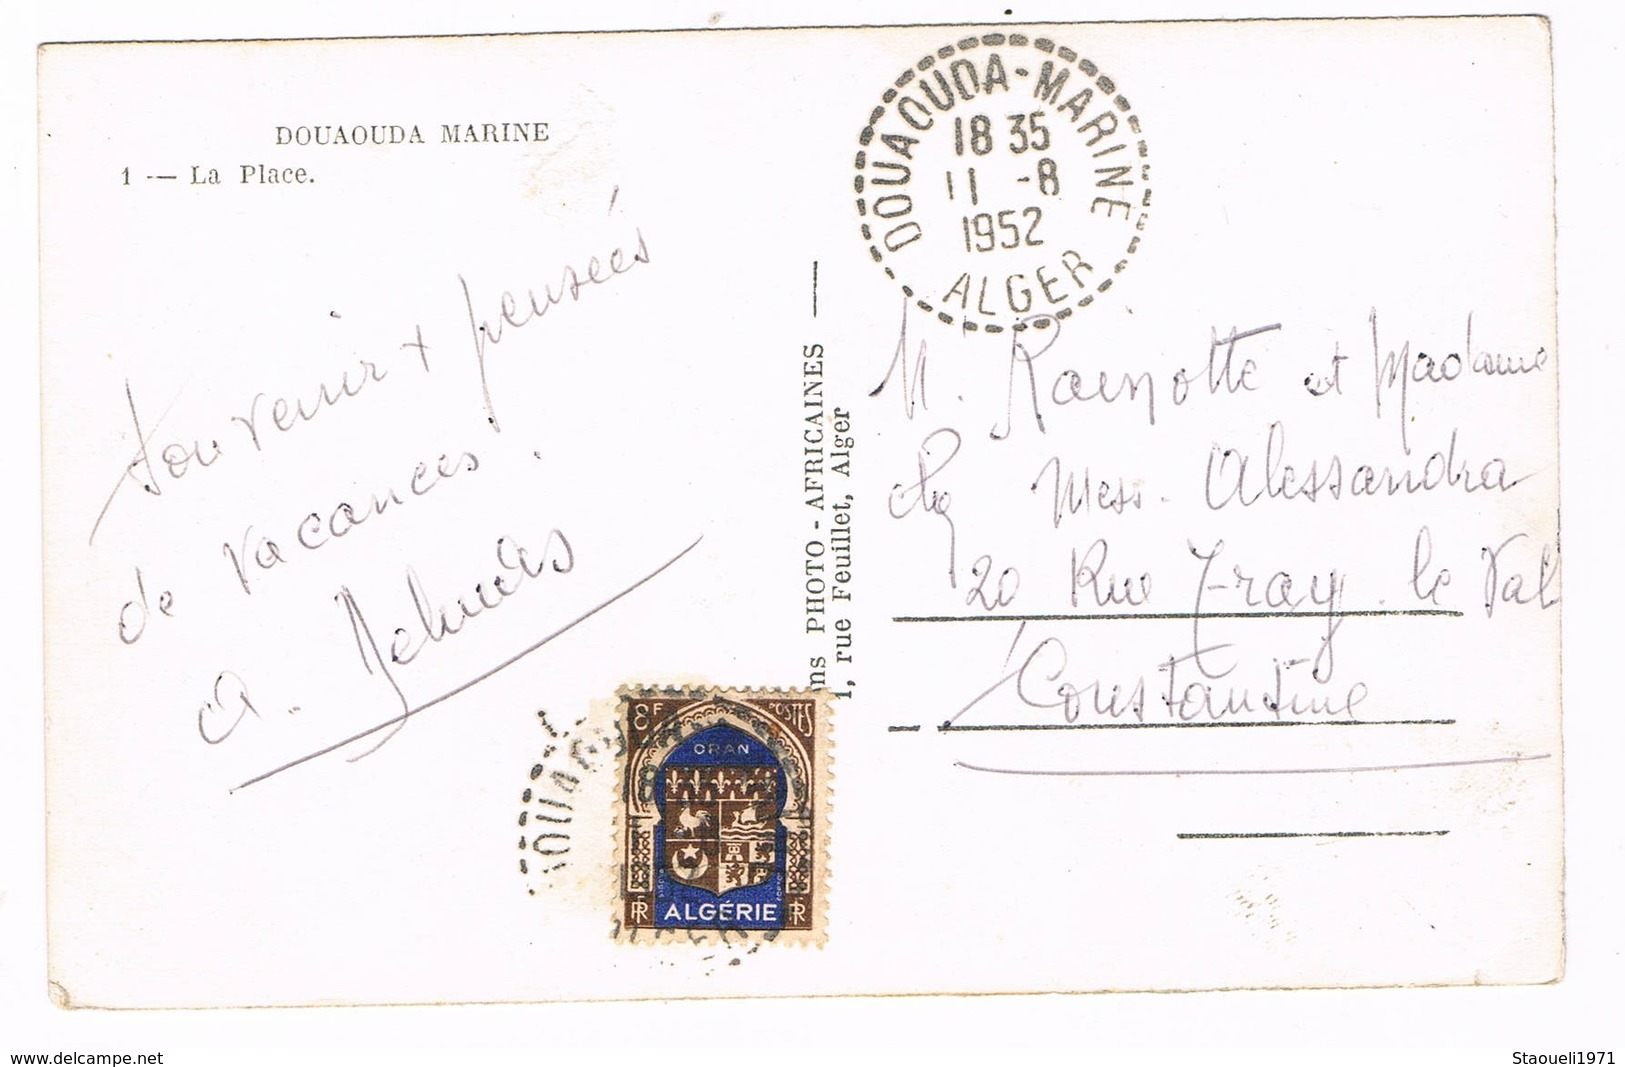 DOUAOUDA MARINE
1 — La Place.
Souvenir + pensées
de vacances.
a.
ns PHOTO - AFRICAINES —
1, rue Feuillet, Alger
DOUAOUDA-MARINE
18 35
11 -8
1952
ALGER
M. et Madame
Mess. Alessandra
20 Rue le Val
Constantine
8F POSTES
ORAN
RF ALGÉRIE RF
www.delcampe.net
Staoueli1971